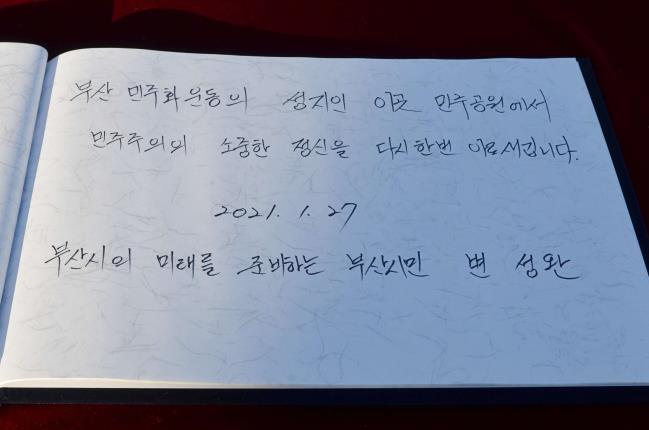 부산 민주화운동의 성지인 이곳 민주공원에서
민주주의의 소중한 정신을 다시한번 되새깁니다.
2021. 1. 27
부산시의 미래를 준비하는 부산시민 변 성완